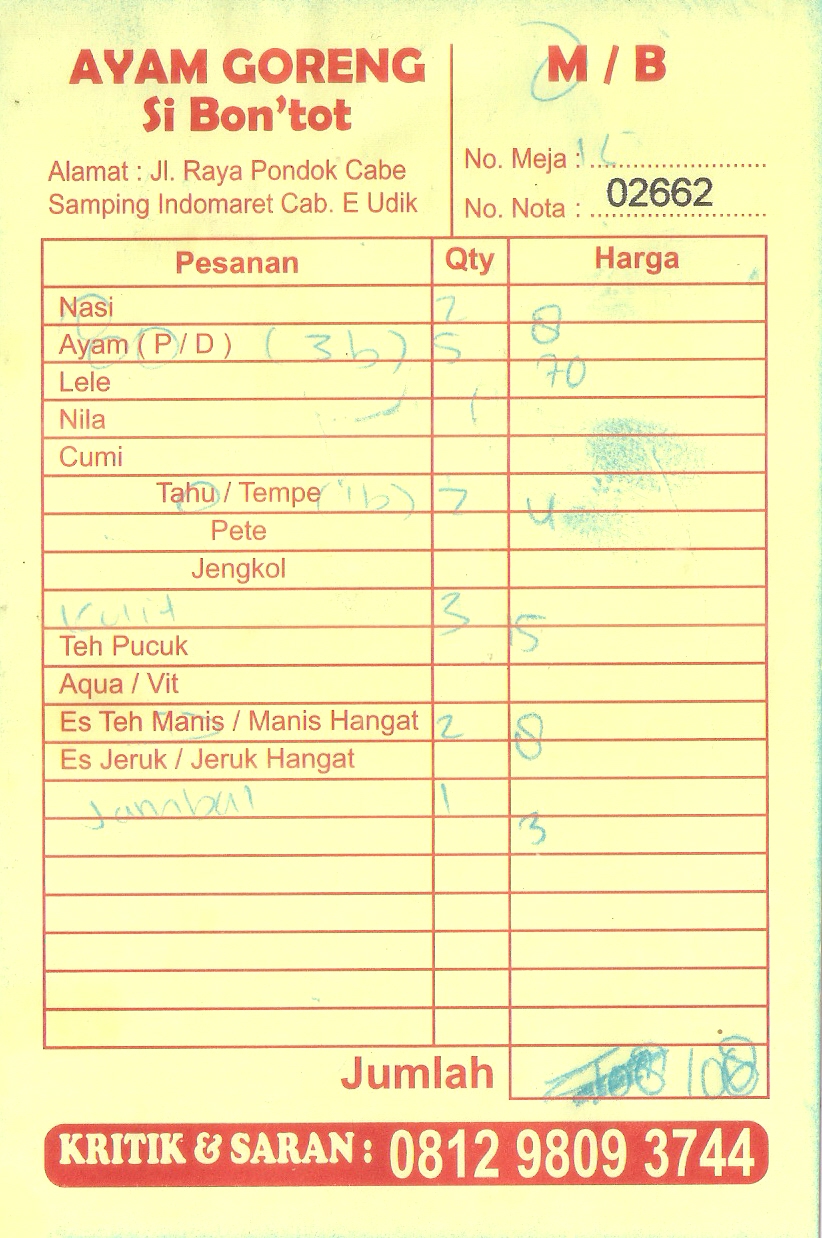 AYAM GORENG
Si Bon'tot
Alamat : Jl. Raya Pondok Cabe
Samping Indomaret Cab. E Udik
M / B
No. Meja :
No. Nota : 02662
Pesanan Qty Harga
Nasi 2 8
Ayam ( P / D ) ( 3 b ) 5 70
Lele
Nila
Cumi
Tahu / Tempe ( 1b ) 2 4
Pete
Jengkol
Kulit 3 15
Teh Pucuk
Aqua / Vit
Es Teh Manis / Manis Hangat 2 8
Es Jeruk / Jeruk Hangat
1 3
Jumlah 108
KRITIK & SARAN : 0812 9809 3744